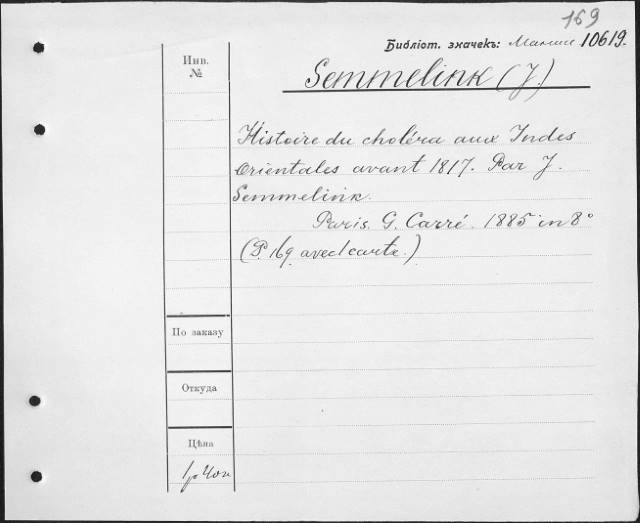 169
Библіот. значекъ: 10619.
Инв.
№
Semmelink (J)
Histoire du choléra aux Indes
Orientales avant 1817. Par J.
Semmelink.
Paris. G. Carré. 1885 in 8°
(P. 169 avec 1 carte.)
По заказу
Откуда
Цѣна
1 р 40 к